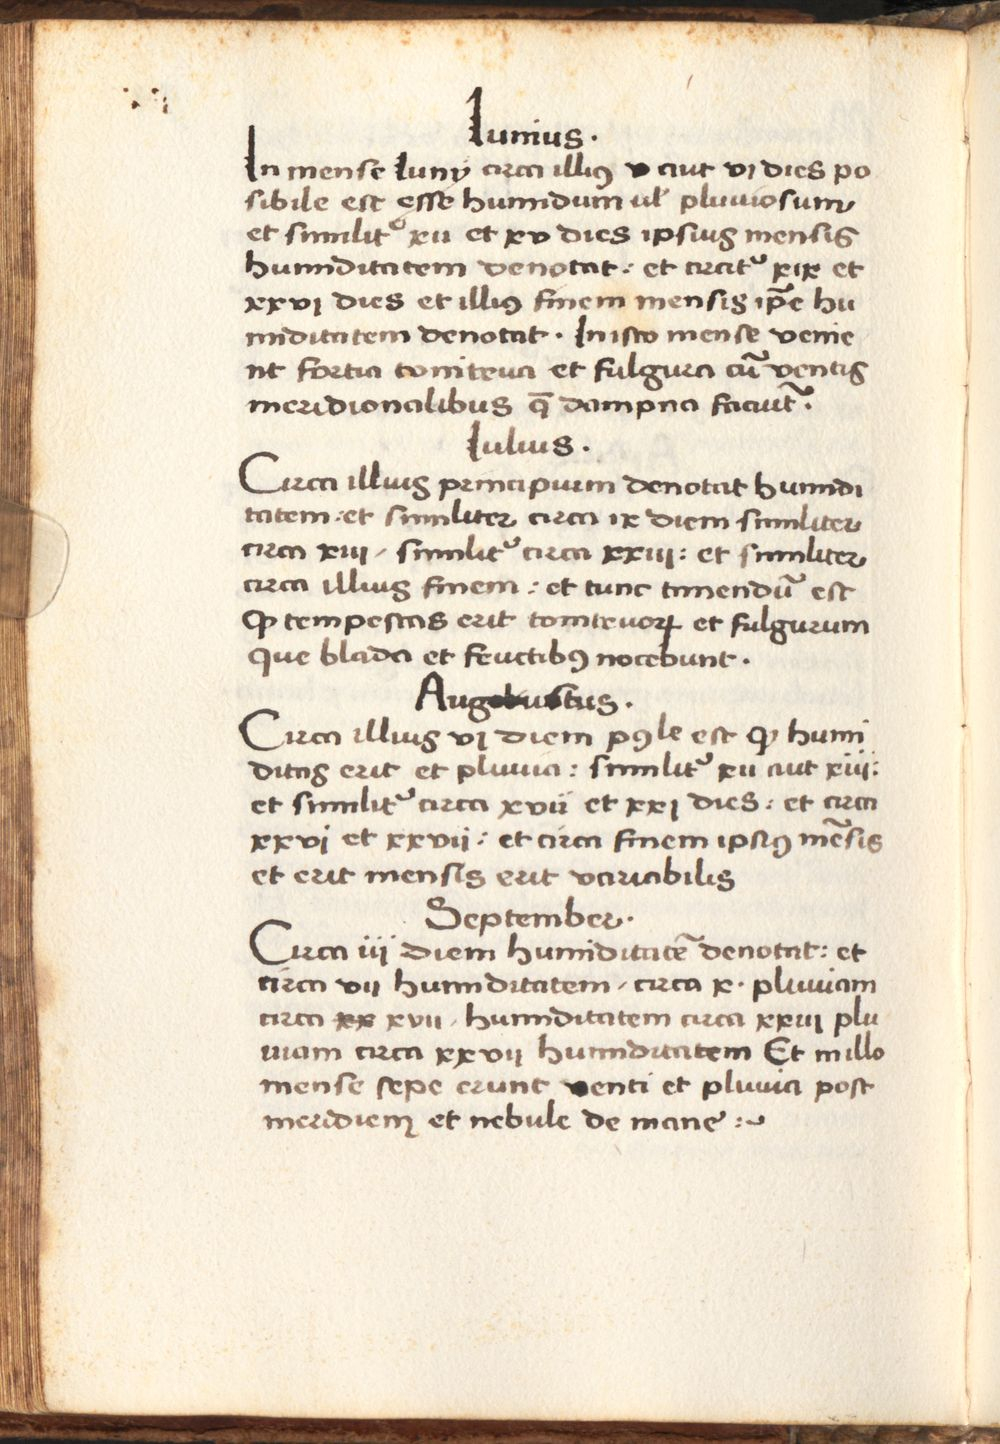 Iunius.
In mense Iunij circa illiꝰ v aut vj dies po
sibile est esse humidum ul̉ pluuiosum
et similitᵒ xii et xv dies ipsius mensis
humiditatem denotat: et circitᵘ xix et
xxvj dies et illiꝰ finem mensis ip̄e hu
miditatem denotat. In isto mense venie
nt fortia tonitrua et fulgura cū ventis
meridionalibus q̄ dampna faciūt.
Iulius.
Circa illius principium denotat humidi
tatem: et similiter circa ix diem similiter
circa xiii / similitᵘ circa xxiii: et similiter
circa illius finem: et tunc timendū est
ꝙ tempestas erit tonitruoꝝ et fulgurum
que blada et fructibꝰ nocebunt.
Augustus.
Circa illius vj diem poꝰle est ꝙ humi
ditas erit et pluuia: similitᵘ xii aut xiii:
et similitᵘ circa xvii et xxj dies: et circa
xxvj et xxvij: et circa finem ipsiꝰ mēsis
et erit mensis erit variabilis
September.
Circa iij diem humiditatē denotat: et
circa vii humiditatem / circa x. pluuiam
circa xx xvii / humiditatem circa xxiii plu
uiam circa xxvij humiditatem Et in illo
mense sepe erunt venti et pluuia post
meridiem et nebule de mane :~